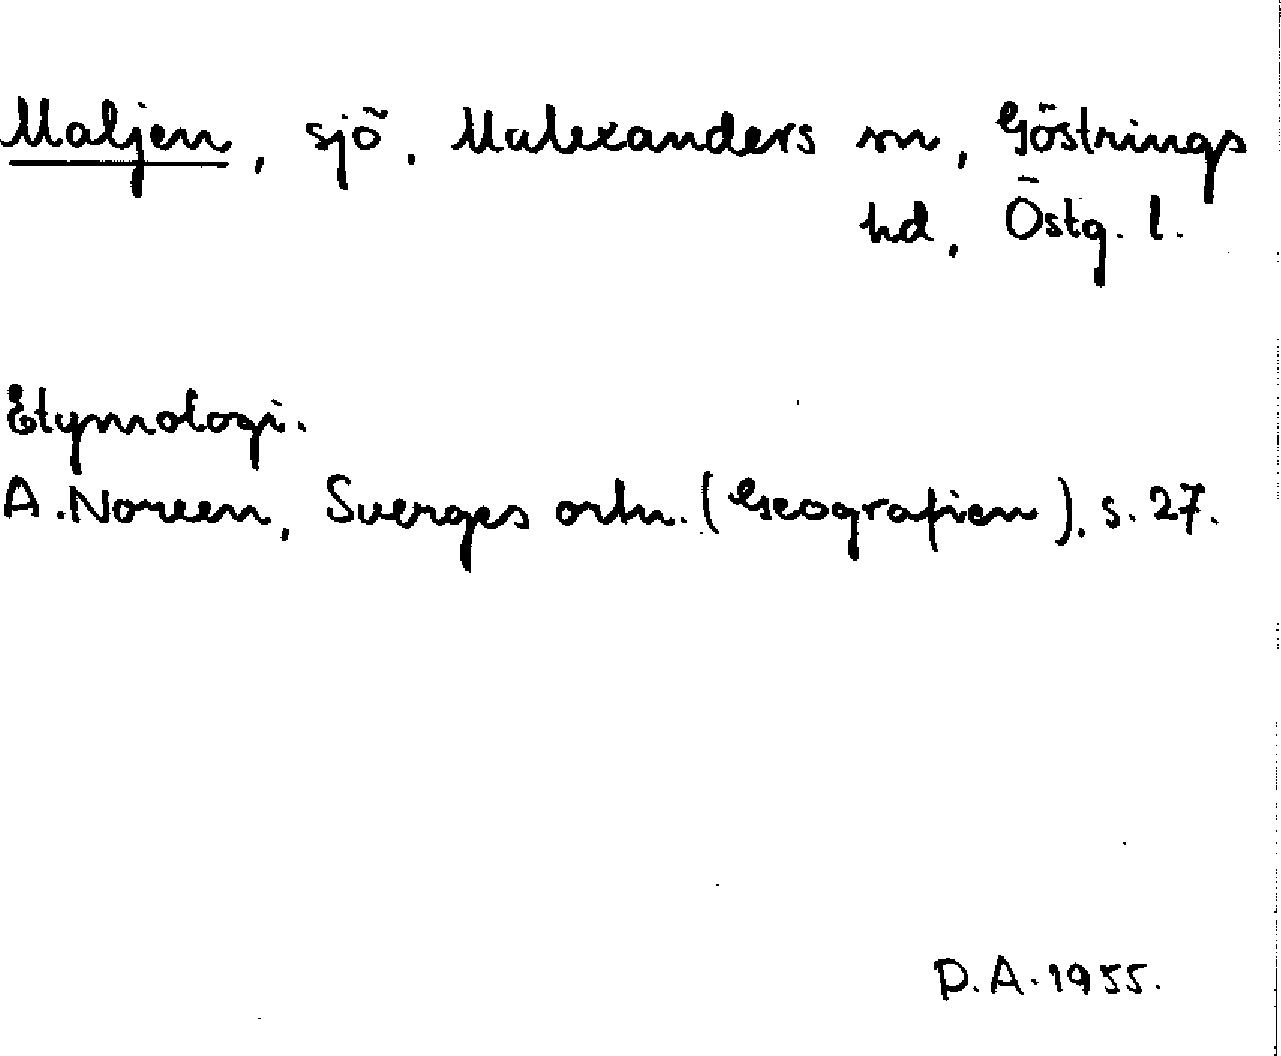 Maljen, sjö, Malexanders sn, Göstrings
hd, Östg. l.
Etymologi.
A. Noreen, Sverges ortn. (Geografien), s. 27.
D.A. 1955.